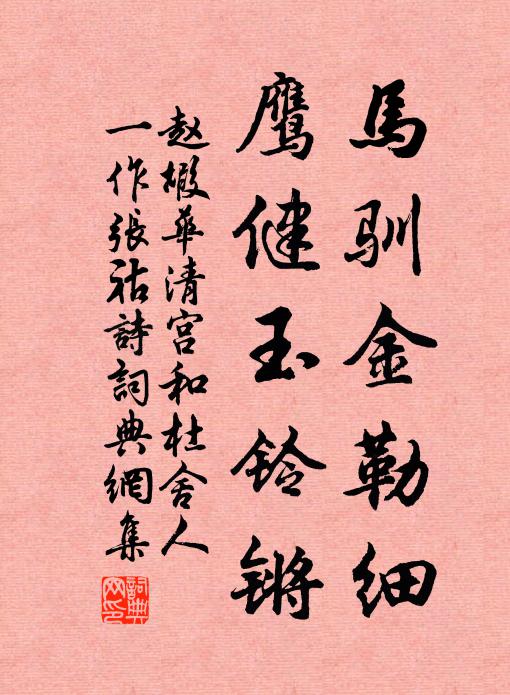 馬馴金勒細
鷹健玉鈴鏘
赵嘏華清宫和杜舍人
一作張祜詩詞典網集
詞典網印